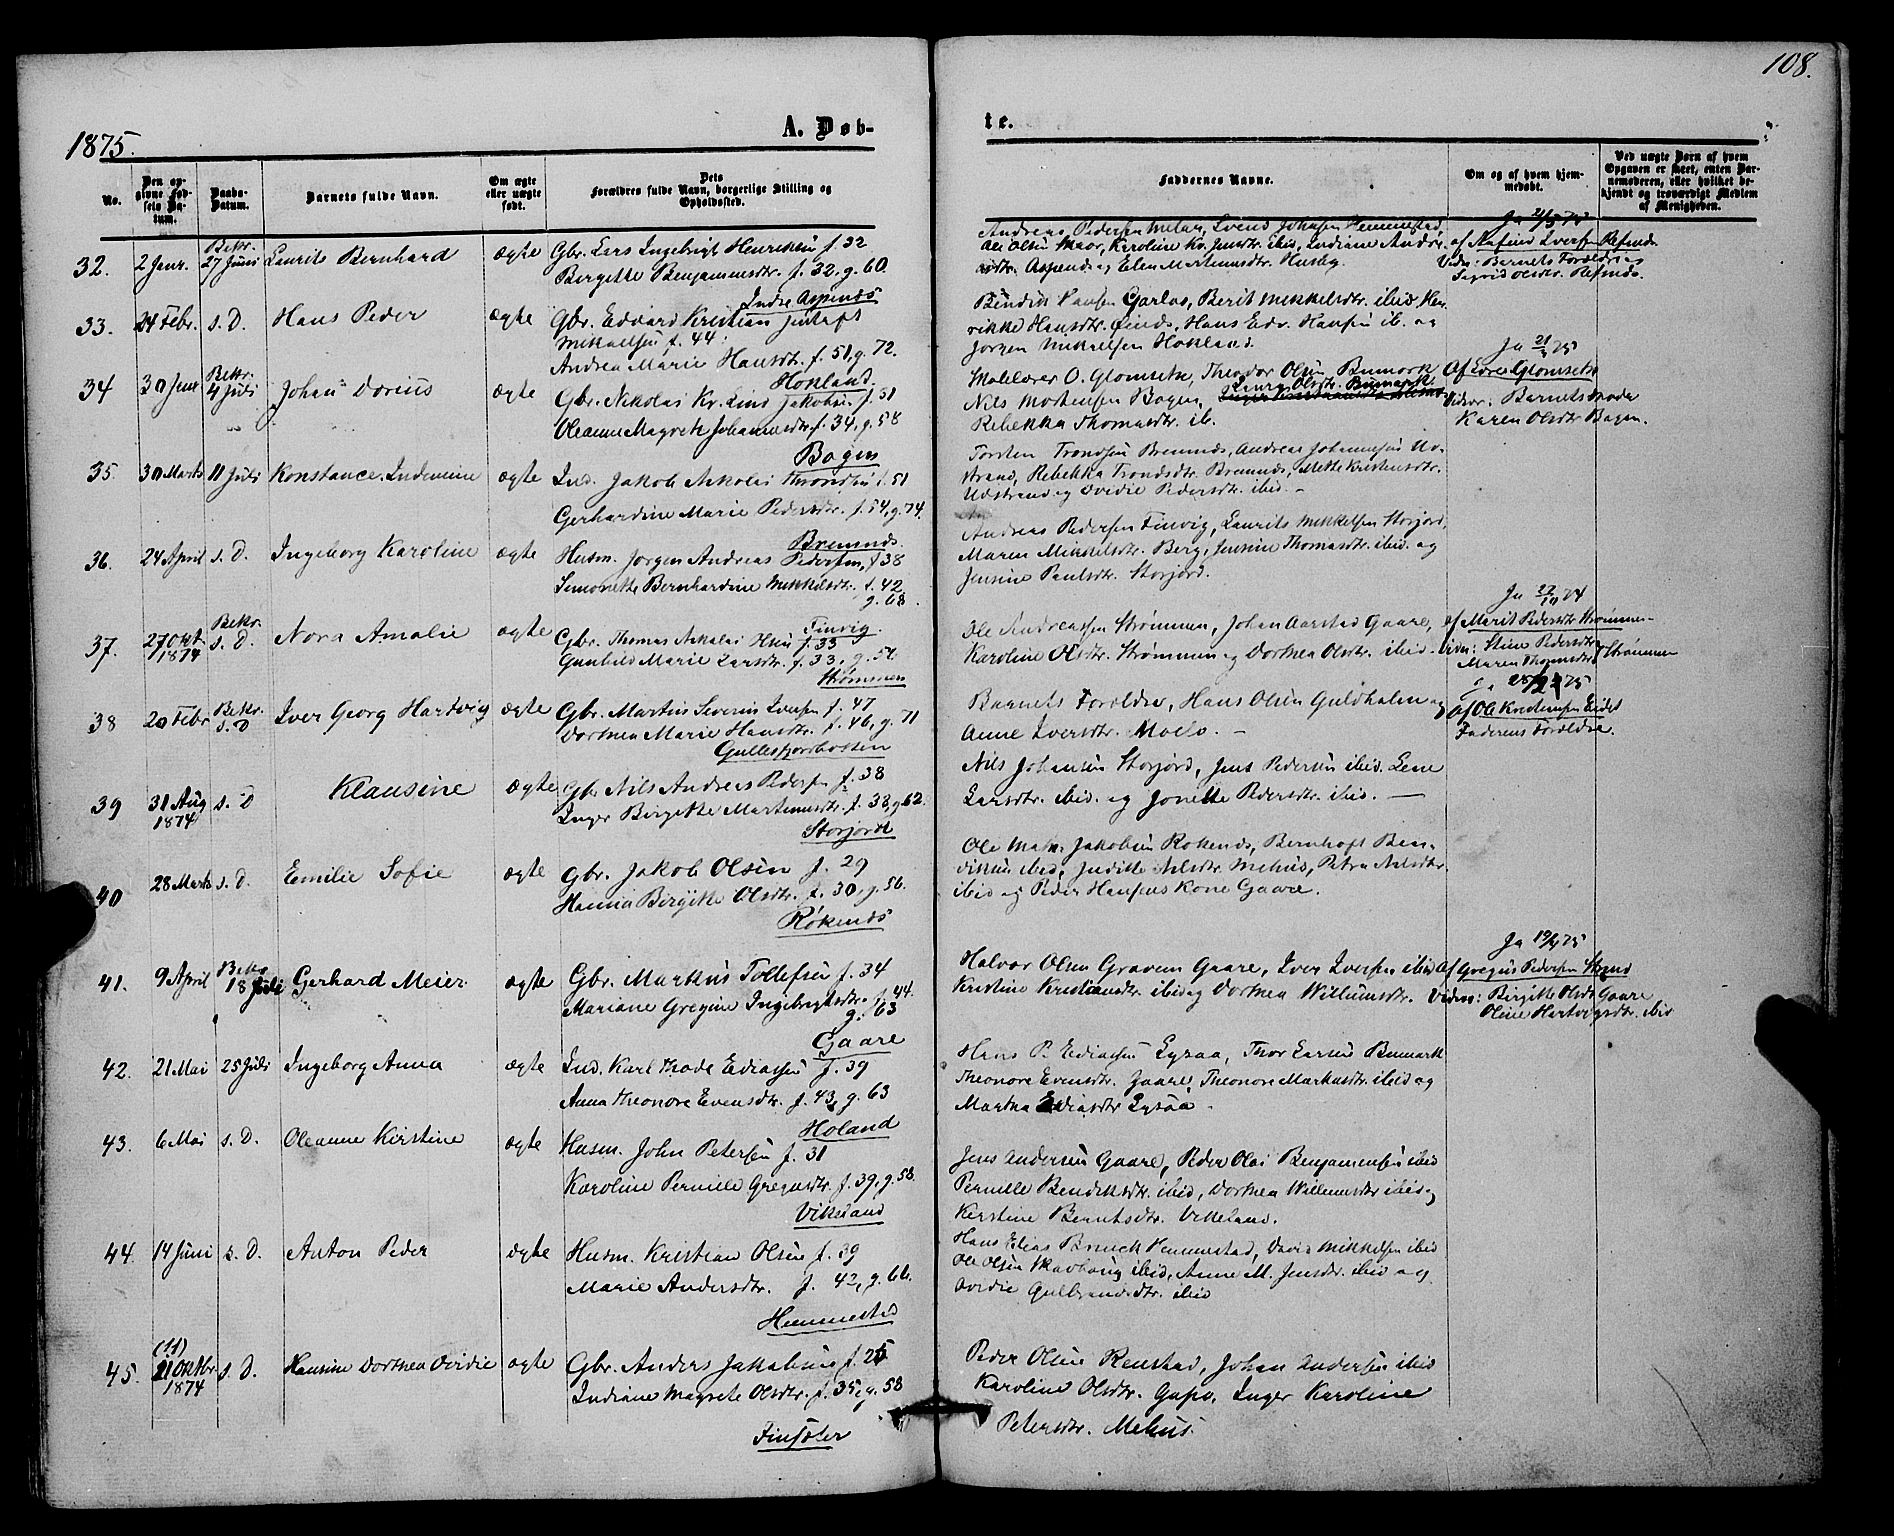 108.
1875.
A. Døb-
te.
No.
Den op-
givne Fød-
sels Da-
tum.
Daabs-
Datum.
Barnets fulde Navn.
Om ægte
eller uægte
født.
Dets
Forældres fulde Navn, borgerlige Stilling og
Opholdssted.
Faddernes Navne.
Om og af hvem hjem-
medøbt.
Ved uægte Børn af hvem
Opgaven er skeet, enten Bar-
nemoderen, eller hvilket be-
kjendt og troværdigt Medlem
af Menigheden.
32. 2 Janr. Bekr. 27 Juni Laurits Bernhard ægte Gbr. Lars Ingebrigt Henriksen f. 32
Birgitte Benjaminsdtr. f. 32, g. 60.
Indre Aspenes
Andreas Pedersen Melan, Svend Johnsen Hemmestad,
Ole Olsen Maar, Karoline Kr. Jensdtr. ibid, Indiane Andr.
Aspenes og Elen Martinusdtr. Husby.
Ja 21/3 75
af Rasmus Iversen Refsnes
Vidn: Barnets Forældre og
Sigrid Olsdtr. Refsnes.
33. 24 Febr. s. D. Hans Peder ægte Gbr. Edvard Kristian Jentoft
Mikkelsen f. 44
Andrea Marie Hansdtr. f. 51, g. 72.
Hokland.
Bendik Hansen Garlas, Berit Mikkelsdtr. ibid, Hen-
rikke Hansdtr. Sands, Hans Edv. Hansen ib. og
Jørgen Mikkelsen Hokland.
34 30 Janr Bekr. 4 Juli Johan Dorius ægte Gbr. Nikolai Kr. Lind Jakobsen f. 31
Oleanna Magreth Johannesdtr. f. 34, g. 58
Bogen
Malelærer O. Glomseth, Theodor Olsen Bumark
Laura Olsdtr. Bumark.
Nils Mortensen Bogen,
Rebekka Thomasdtr. ib.
Ja 21/3 75
Af Lærer Glomseth
Vidner: Barnets Moder
Karen Olsdtr Bogen.
35. 30 Marts 11 Juli Konstance Indemine ægte Ind. Jakob Nikolai Throndsen f. 51
Gerhardine Marie Pedersdtr. f. 54, g. 74.
Bremnes.
Torsten Trondsen Bremnes, Andreas Johannesen Ud-
strand, Rebekka Trondsdtr. Bremnes, Mette Kristensdtr.
Udstrand og Ovidie Pedersdtr. ibid. –
36. 24 April s. D. Ingeborg Karoline ægte Husm. Jørgen Andreas Pedersen, f 38
Simonette Bernhardine Mikkelsdtr. f. 42
g. 68.
Finvig.
Andreas Pedersen Finvig, Laurits Mikkelsen Storjord,
Maren Mikkelsdtr. Berg, Jensine Thomasdtr. ibid. og
Jensine Paulsdtr. Storjord.
37. 27 Okt. 1874 Bekr. s. D. Nora Amalie ægte Gbr. Thomas Nikolai Hsen f. 33
Gunhild Marie Larsdtr. f. 33, g. 56.
Strømmen
Ole Andreassen Strømmen, Johan Aarstad Gaare,
Karoline Olsdtr. Strømmen og Dorthea Olsdtr. ibid.
Ja 22/10 74
af Marit Pedersdtr Strømmen
Vidn: Stine Pedersdtr
Maren Thomasdtr Strømmen
38 20 Febr Bekr. s. D Iver Georg Hartvig ægte Gbr. Martin Severin Iversen f. 47
Dorthea Marie Hansdtr. f. 46, g. 71
Gullesfjordbotten
Barnets Forældre, Hans Olsen Guldhalsen og
Anne Iversdtr. Moelv. –
Ja 75
Af Ole Kristensen Eidet
Faderens Forældre.
39 31 Aug 1874 s. D Klausine ægte Gbr. Nils Andreas Pedersen f. 38
Inger Birgitte Martinusdtr. f. 38, g. 62.
Storjord
Nils Johansen Storjord, Jens Pedersen ibid. Lene
Larsdtr. ibid. og Jonette Pedersdtr. ibid. –
40 28 Marts s. D. Emilie Sofie ægte Gbr. Jakob Olsen f. 29
Hanna Birgitte Olsdtr. f. 30, g. 56.
Røkenes
Ole Math. Jakobsen Røkenes, Bernhoft Ben-
diksen ibid, Juditte Nilsdtr. Mehus, Petra Nilsdtr.
ibid og Peder Hansens Kone Gaare.
41. 9 April Bekr. 18 Juli Gerhard Meier ægte Gbr. Markus Tollefsen f. 34
Mariane Gregine Ingebrigtsdtr. f. 44.
g. 63
Gaare
Halvor Olsen Graven Gaare, Iver Iversen ibid
Kristine Kristiansdtr. ibid og Dorthea Willumsdtr.
Ja 19/4 75
Af Gregus Pedersen Strand
Vidn: Birgitte Olsdtr Gaare
Oline Hartvigsdtr. ibid
42. 21 Mai 25 Juli Ingeborg Anna ægte Ind. Karl Thode Ediassen f. 39
Anna Theonore Evensdtr. f. 43, g. 63
Holand
Hans P. Ediassen Lysaa, Thor Larsen Bumark
Theonore Evensdtr. Gaare, Theonore Markusdtr. ibid og
Martha Ediasdtr Lysaa –
43. 6 Mai s. D. Oleanne Kirstine ægte Husm. John Petersen f. 31
Karoline Pernille Gregusdtr. f. 39, g. 58.
Vikeland
Jens Andersen Gaare, Peder Olai Benjaminsen ibid
Pernille Bendiksdtr. ibid, Dorthea Willumsdtr ibid og
Kirstine Berntsdtr. Vikeland.
44. 14 Juni s. D. Anton Peder ægte Husm. Kristian Olsen f. 39
Marie Andersdtr. f. 42, g. 66.
Hemmestad
Hans Elias Bruck Hemmestad, David Mikkelsen ibid
Ole Olsen Skavhaug ibid, Anne M. Jensdtr. ibid og
Ovidie Gulbrandsdtr. ibid
45. (11) 21 Oktbr 1874 s. D. Hansine Dorthea Ovidie ægte Gbr. Anders Jakobsen f. 25
Indiane Magrete Olsdtr. f. 35, g. 58
Finsæter
Peder Olsen Renstad, Johan Andersen ibid
Karoline Olsdtr. Gapø, Inger Karoline
Petersdtr. Mehus.